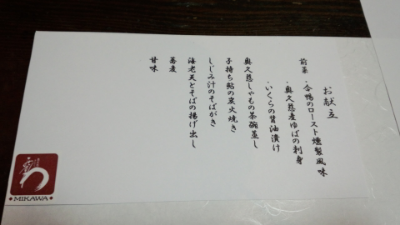 お献立
前菜・合鴨のロースト燻製風味
・奥久慈産ゆばの刺身
・いくらの醤油漬け
奥久慈しゃもの茶碗蒸し
子持ち鮎の炭火焼き
しじみ汁のそばがき
海老天とそばの揚げ出し
蕎麦
甘味
MIKAWA